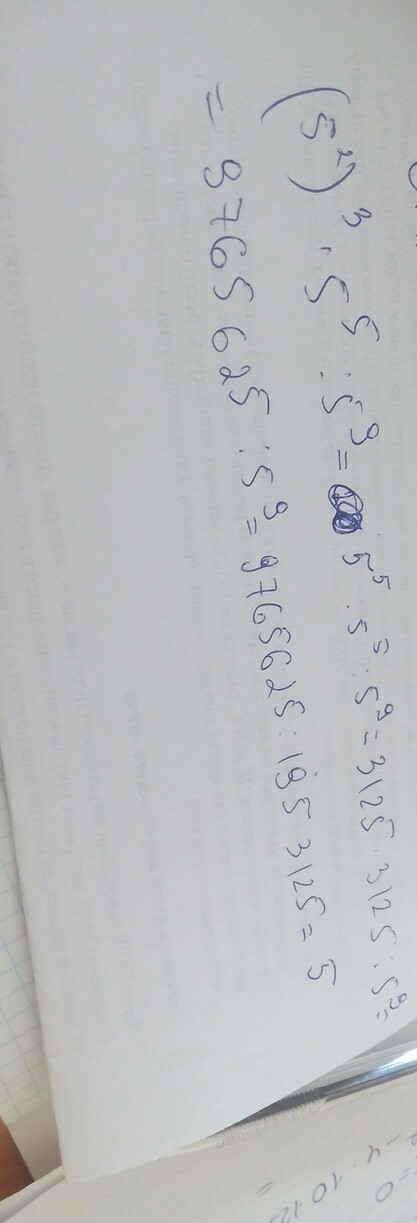 (5²)³ · 5⁵ : 5⁹ = 5⁵ · 5⁵ : 5⁹ = 3125 · 3125 : 5⁹ =
= 9765625 : 5⁹ = 9765625 : 1953125 = 5